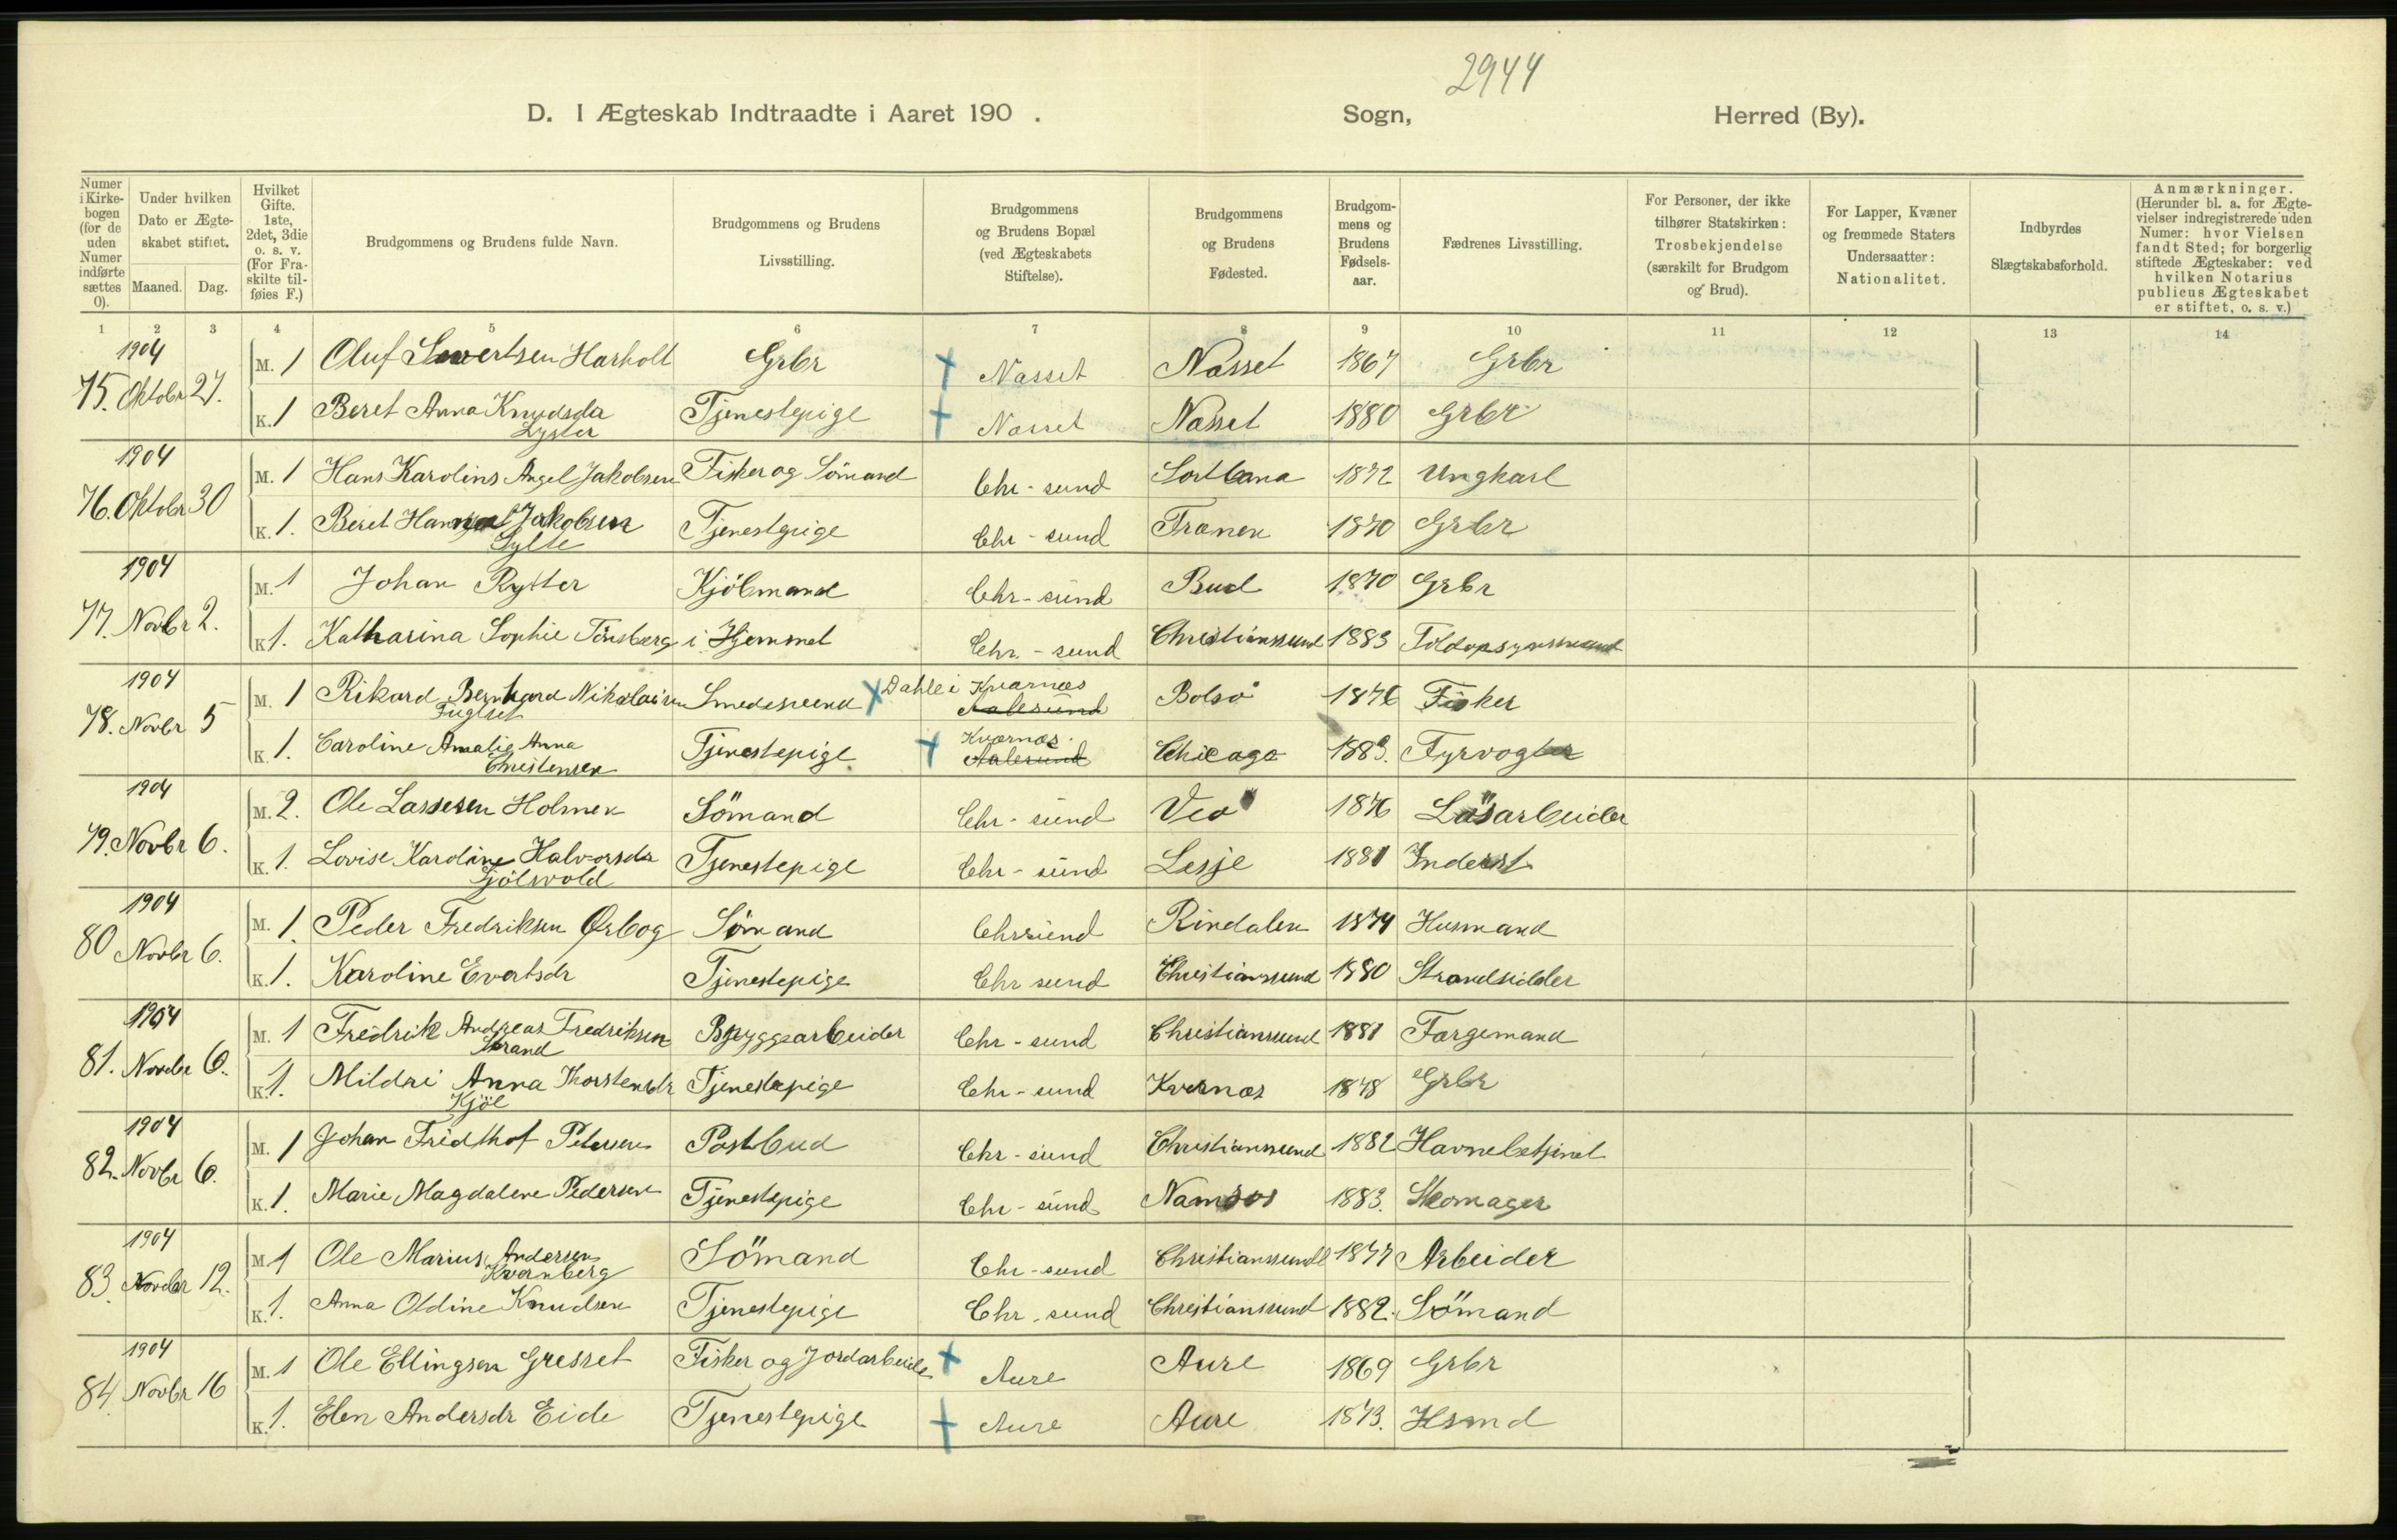 2944
D. I Ægteskab Indtraadte i Aaret 190 . Sogn, Herred (By).
Numer i Kirkebogen (for de uden Numer indførte sættes 0).
Under hvilken Dato er Ægteskabet stiftet.
Maaned. Dag.
Hvilket Gifte. 1ste, 2det, 3die o. s. v. (For Fraskilte tilføies F.)
Brudgommens og Brudens fulde Navn.
Brudgommens og Brudens Livsstilling.
Brudgommens og Brudens Bopæl (ved Ægteskabets Stiftelse).
Brudgommens og Brudens Fødested.
Brudgommens og Brudens Fødselsaar.
Fædrenes Livsstilling.
For Personer, der ikke tilhører Statskirken: Trosbekjendelse (særskilt for Brudgom og Brud).
For Lapper, Kvæner og fremmede Staters Undersaatter: Nationalitet.
Indbyrdes Slægtskabsforhold.
Anmærkninger. (Herunder bl. a. for Ægtevielser indregistrerede uden Numer: hvor Vielsen fandt Sted; for borgerlig stiftede Ægteskaber: ved hvilken Notarius publicus Ægteskabet er stiftet, o. s. v.)
1 2 3 4 5 6 7 8 9 10 11 12 13 14
1904
75. Oktobr 27.
M. 1 Oluf Harholt Grbr Næsset Næsset 1867 Grbr
K. 1 Beret Anna Knudsdr Tjenestepige Næsset Næsset 1880 Grbr
Lyster
1904
76. Oktobr 30
M. 1 Hans Karolins Angel Jakobsen Fisker og Sömand Chr-sund 1872 Ungkarl
K. 1. Beret Jakobsen Tjenestepige Chr-sund Frænen 1870 Grbr
Sylte
1904
77. Novbr 2.
M. 1 Johan Rytter Kjöbmand Chr-sund Bud 1870 Grbr
K. 1. Katharina Sophie Tönsberg i Hjemmet Chr.-sund Christianssund 1883 Toldopsynsmand
1904
78. Novbr 5
M. 1 Rikard Bernhard Nikolaisen Smedsvend Dahle i Kvarnæs Aalesund Bolsö 1876 Fisker
Fuglset
K. 1. Caroline Amalie Anna Tjenestepige Kværnæs. Aalesund Chicago 1883. Fyrvogter
Christensen
1904
79. Novbr 6.
M. 2. Ole Lassesen Holmen Sömand Chr-sund Veö 1876 Lösarbeider
K. 1. Lovise Karoline Halvorsdr Tjenestepige Chr-sund Lesje 1881 Inderst
Gjölsvold
1904
80 Novbr 6.
M. 1. Peder Fredriksen Ørbog Sömand Chrsund Rindalen 1874 Husmand
K. 1. Karoline Evertsdr Tjenestepige Chr sund Christianssund 1880 Strandsidder
1904
81. Novbr 6.
M. 1 Fredrik Andreas Fredriksen Bryggearbeider Chr-sund Christianssund 1881 Færgemand
Strand
K. 1. Mildri Anna Thorstensdr Tjenestepige Chr-sund Kvernæs 1878 Grbr
Kjöl
1904
82. Novbr 6.
M. 1 Johan Fridthof Petersen Postbud Chr-sund Christianssund 1882 Havnebetjent
K. 1. Marie Magdalene Pedersen Tjenestepige Chr-sund Namsos 1883. Skomager
1904
83. Novbr 12.
M. 1 Ole Marius Andersen Sömand Chr-sund Christianssund 1877 Arbeider
Kvernberg
K. 1. Anna Oldine Knudsen Tjenestepige Chr.sund Christianssund 1882. Sömand
1904
84. Novbr 16
M. 1 Ole Ellingsen Gresset Fisker og Jordarbeider Aure Aure 1869 Grbr
K. 1. Elen Andersdr Eide Tjenestepige Aure Aure 1873. Hsmd